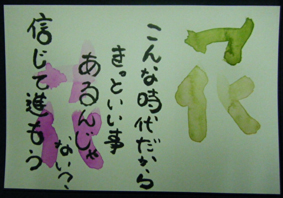 こんな時代だから
きっといい事
あるんじゃ
ない?
信じて進もう